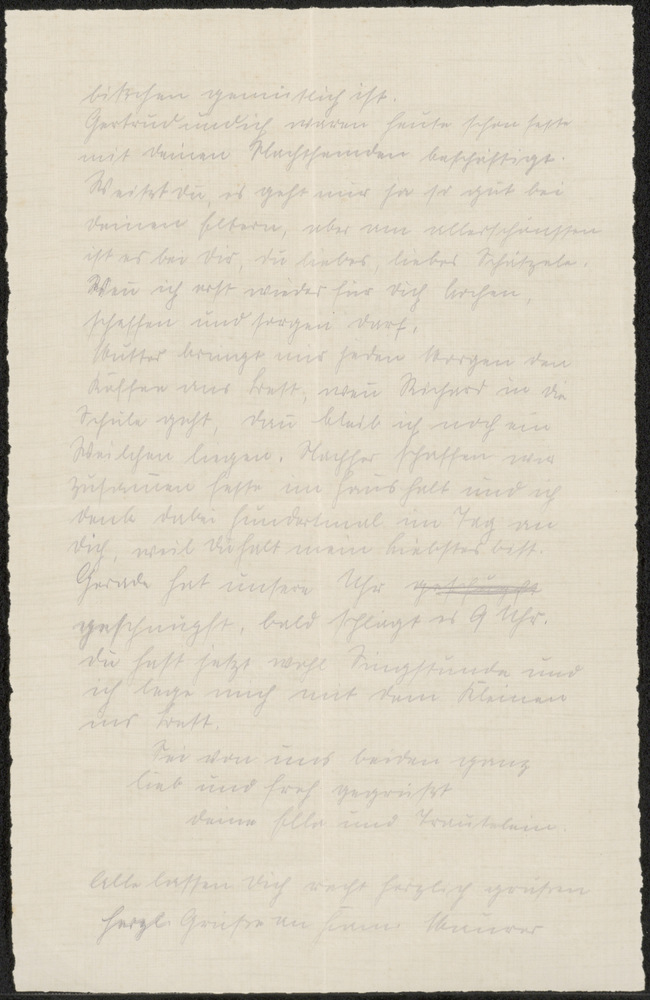 bißchen gemütlich ist.
Gertrud und ich waren heute schon feste
mit deinen Nachthemden beschäftigt.
Weißt du, es geht mir ja so gut bei
deinen Eltern, aber am allerschönsten
ist es bei Dir, du liebes, liebes Schätzele.
Wenn ich erst wieder für Dich kochen,
schaffen und sorgen darf.
Mutter bringt mir jeden Morgen den
Kaffee ans Bett, wenn Richard in die
Schule geht, dann bleib ich noch ein
Weilchen liegen. Nachher schaffen wir
zusammen feste im Haushalt und ich
denk dabei hundertmal im Tag an
dich, weil du halt mein Liebstes bist.
Gerade hat unsere Uhr
geschnupft, bald schlägt es 9 Uhr.
Du hast jetzt wohl Singstunde und
ich lege mich mit dem Kleinen
ins Bett.
Sei von uns beiden ganz
lieb und froh gegrüßt
deine Ella und Trautelein.
Alle lassen Dich recht herzlich grüßen
Herzl. Grüße an Maurer